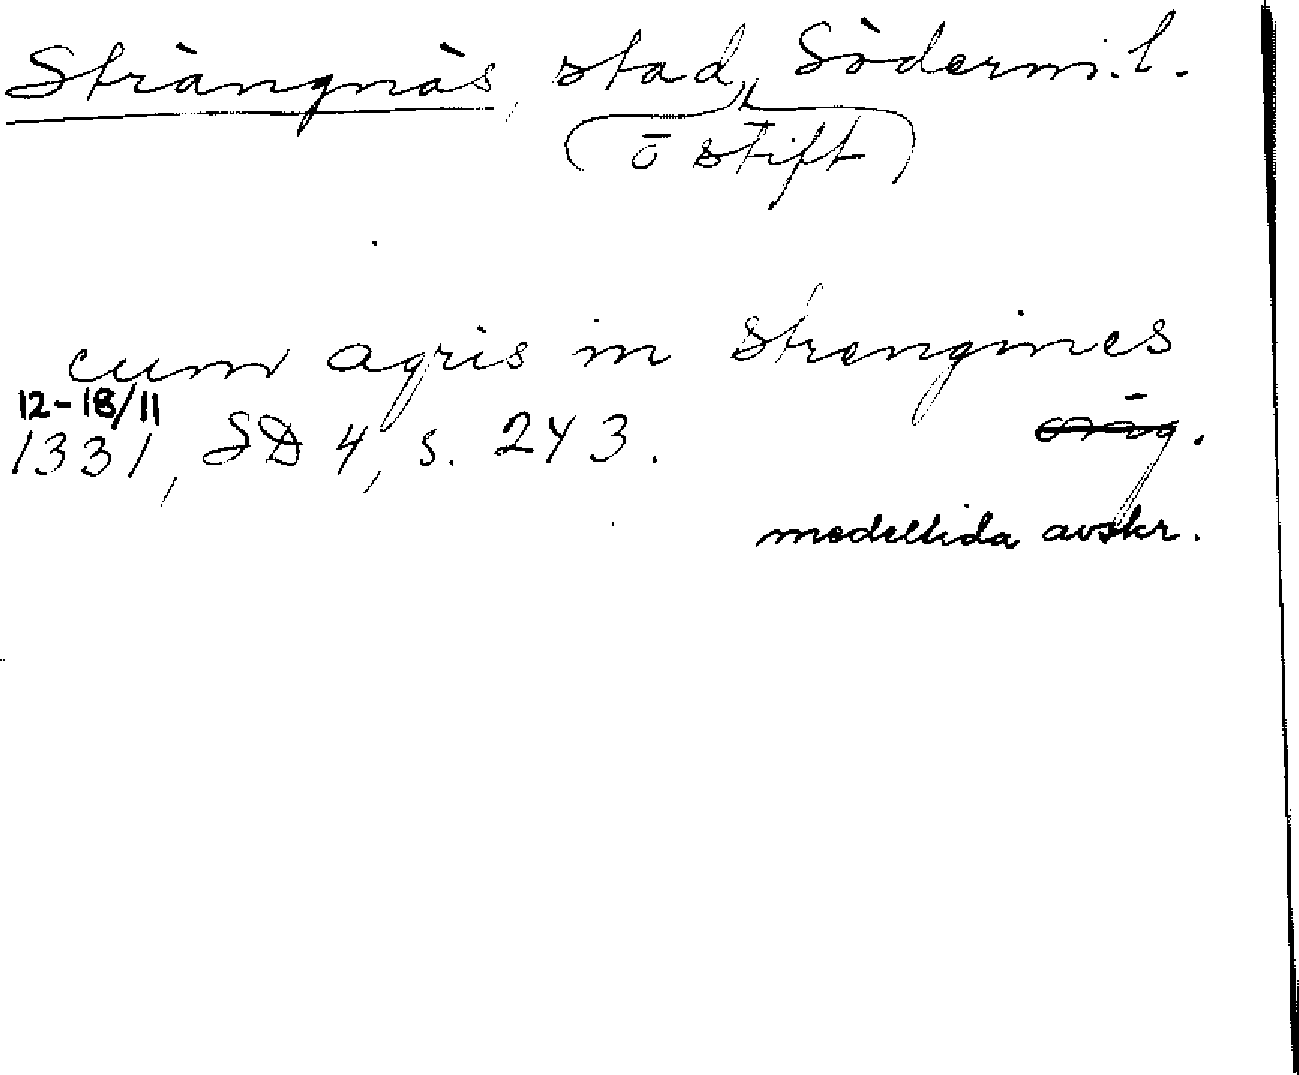 Strängnäs, stad, Söderm. l.
(o stift)
cum agris in Strengines
12-18/11
1331, SD 4, s. 243.
orig.
medeltida avskr.